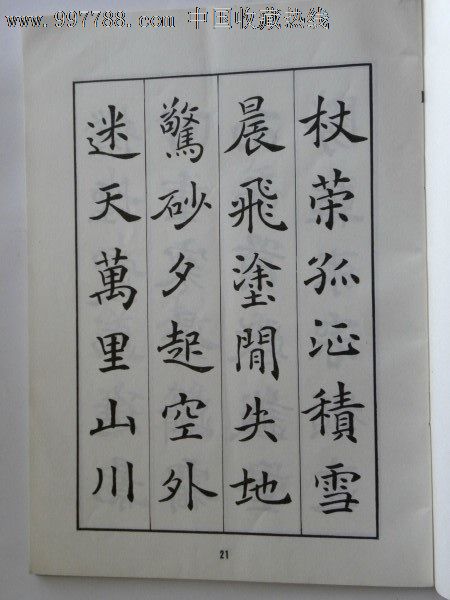 www.997788.com 中国收藏热线
杖策孤征積雪
晨飛塗閒失地
驚砂夕起空外
迷天萬里山川
21